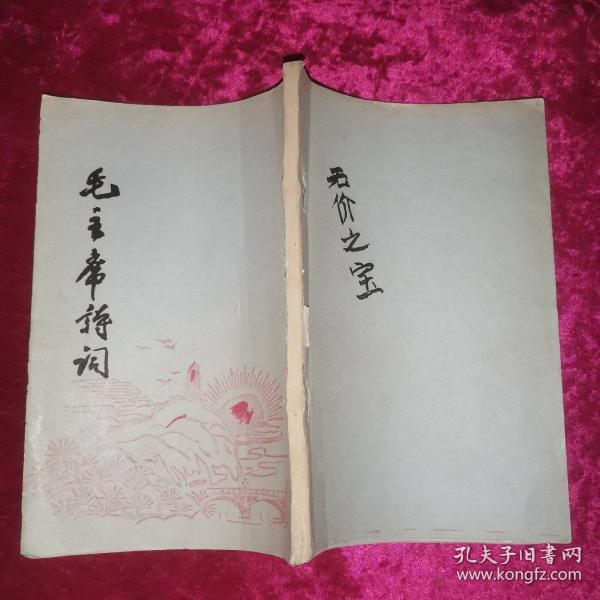 毛主席诗词
无价之宝
孔夫子旧书网
www.kongfz.com